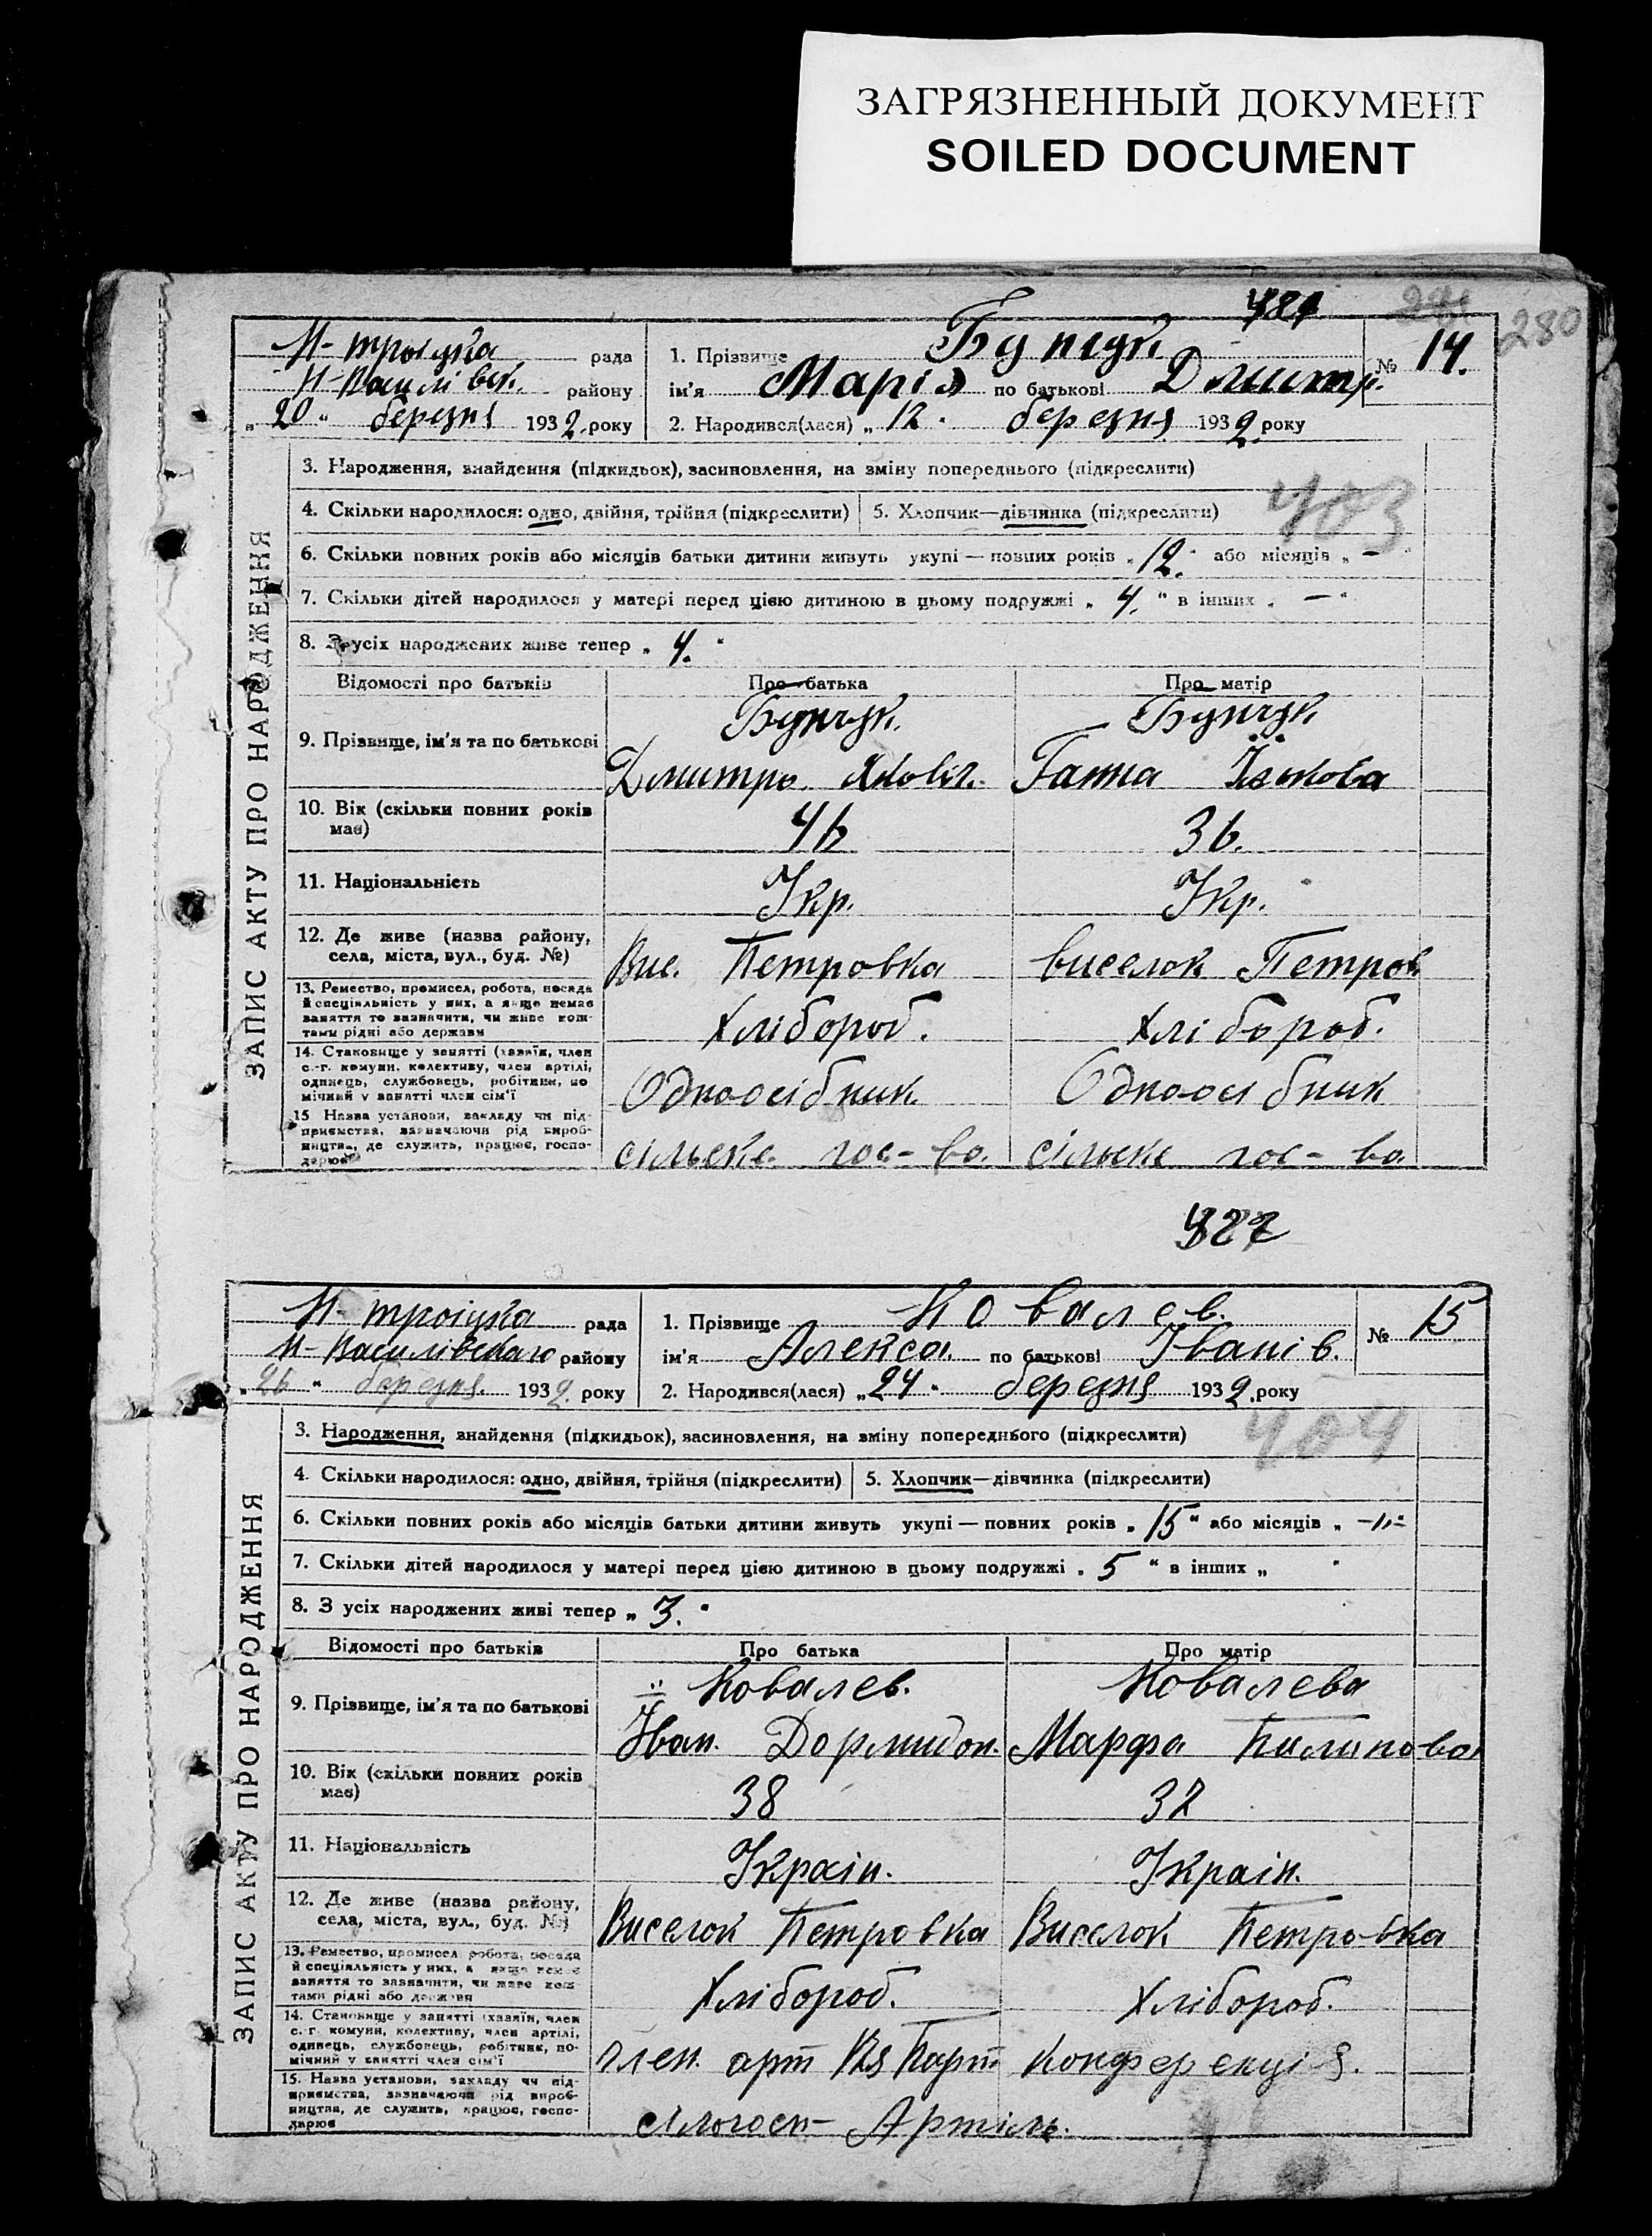 ЗАГРЯЗНЕННЫЙ ДОКУМЕНТ
SOILED DOCUMENT
280
Н-троицка рада
Н-Василівск. району
„20“ березня 1932 року
1. Прізвище
ім'я Марія по батькові Дмитр.
2. Народився(лася) „12“ березня 1932 року
№ 14.
ЗАПИС АКТУ ПРО НАРОДЖЕННЯ
3. Народження, знайдення (підкидьок), засиновлення, на зміну попереднього (підкреслити)
403
4. Скільки народилося: одно, двійня, трійня (підкреслити)
5. Хлопчик—дівчинка (підкреслити)
6. Скільки повних років або місяців батьки дитини живуть укупі — повних років „12.“ або місяців „—“
7. Скільки дітей народилося у матері перед цією дитиною в цьому подружжі „4.“ в інших „—“
8. З усіх народжених живе тепер „4.“
Відомості про батьків Про батька Про матір
9. Прізвище, ім'я та по батькові
Дмитро Яковл. Ганна
10. Вік (скільки повних років має) 46 36.
11. Національність Укр. Укр.
12. Де живе (назва району, села, міста, вул., буд. №) Вис. Петровка виселок Петров
13. Ремество, промисел, робота, посада
й спеціяльність у них, а якщо немає
заняття то зазначити, чи живе кош-
тами рідні або держави
Хлібороб. Хлібороб.
14. Становище у занятті (хазяїн, член
с.-г. комуни, колективу, член артілі,
одинець, службовець, робітник, по
мічний у занятті член сім'ї
Одноосібник Одноосібник
15 Назва установи, закладу чи під-
приємства, зазначаючи рід вироб-
ництва, де служить, працює, госпо-
дарює
сільське гос-во. сільске гос-во.
427
Н-троіцка рада
Н-Василівскаго району
„26“ березня. 1932. року
1. Прізвище Ковалев.
ім'я Алекса. по батькові Іванів.
2. Народився(лася) „24“ березня 1932. року
№ 15
ЗАПИС АКТУ ПРО НАРОДЖЕННЯ
3. Народження, знайдення (підкидьок), засиновлення, на зміну попереднього (підкреслити)
404
4. Скільки народилося: одно, двійня, трійня (підкреслити)
5. Хлопчик—дівчинка (підкреслити)
6. Скільки повних років або місяців батьки дитини живуть укупі — повних років „15“ або місяців „—„—
7. Скільки дітей народилося у матері перед цією дитиною в цьому подружжі „5“ в інших „ “
8. З усіх народжених живі тепер „3.“
Відомості про батьків Про батька Про матір
9. Прізвище, ім'я та по батькові Ковалев. Ковалева
Іван. Дормидон. Марфа Пилипова
10. Вік (скільки повних років має) 38 37
11. Національність Україн. Україн.
12. Де живе (назва району, села, міста, вул., буд. №) Виселок Петровка Виселок Петровка
13. Ремество, промисел робота, посада
й спеціяльність у них, а якщо немає
заняття то зазначити, чи живе кош-
тами рідні або держави
Хлібороб. Хлібороб.
14. Становище у занятті (хазяїн, член
с.-г. комуни, колективу, член артілі,
одинець, службовець, робітник, по-
мічний у занятті член сім'ї
член. арт Парт. Конференції.
15. Назва установи, закладу чи під-
приємства, зазначаючи рід вироб-
ництва, де служить, працює, госпо-
дарює
сілогосп- Артіль.